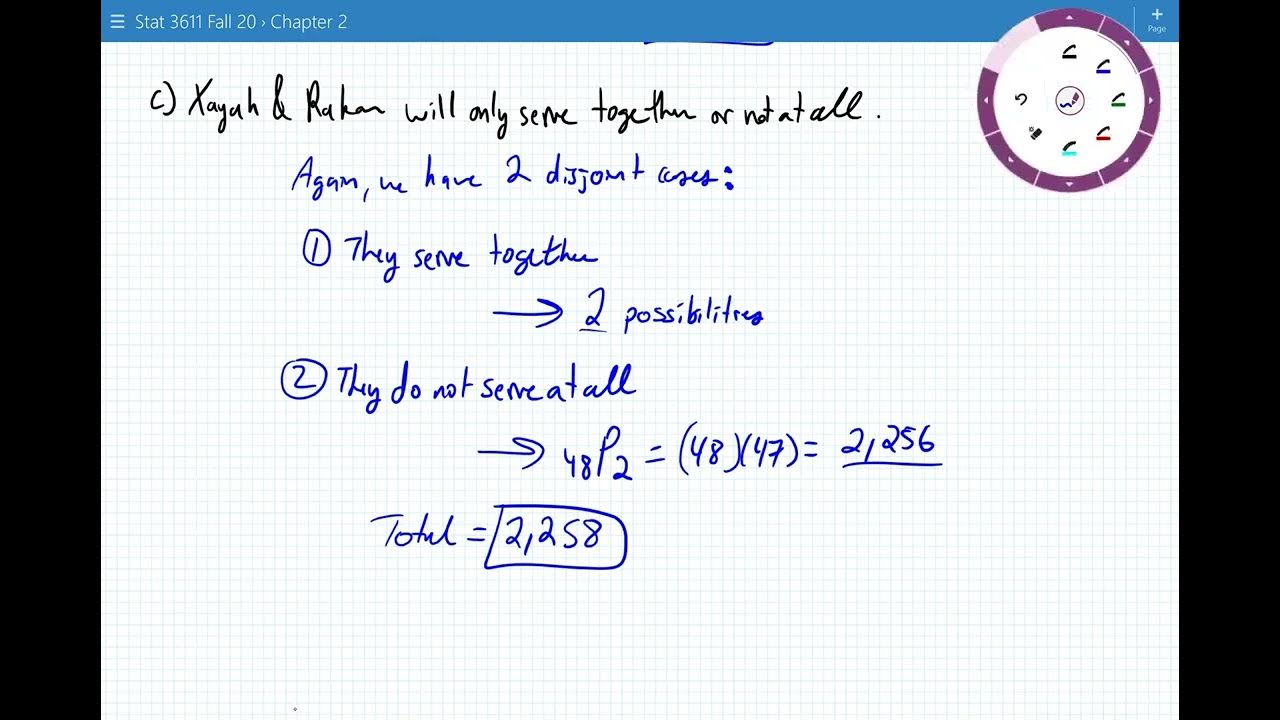 Stat 3611 Fall 20 › Chapter 2
Page
c) Xayah & Rakan will only serve together or not at all.
Again, we have 2 disjoint cases:
① They serve together
→ 2 possibilities
② They do not serve at all
→ ₄₈P₂ = (48)(47) = 2,256
Total = 2,258